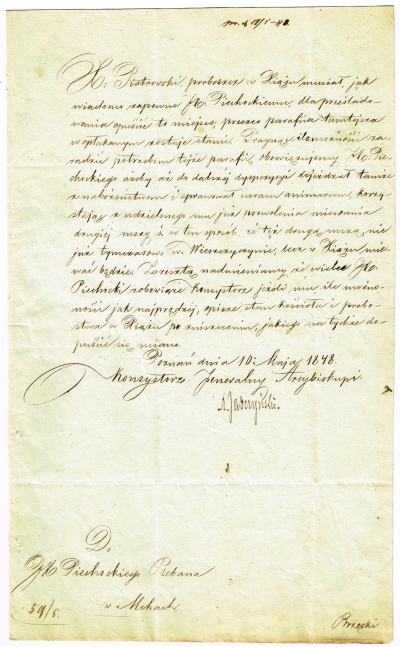 X. Piotrowski proboszcz w Xiążu musiał, jak
wiadomo zapewne JX. Piechockiemu, dla prześlado-
wania opuścić to miejsce, przezco parafia tamtejsza
w opłakanym zostaje stanie. Pragnąc ile możności za-
radzić potrzebom tejże parafii, obowięzujemy JX. Pie-
chockiego ażeby aż do dalszej dyspozycyi dojeżdżał tamże
z nabożeństwem i sprawował curam animarum, korzy-
stając z udzielonego mu już pozwolenia miewania
drugiej mszy ś. w ten sposób, że też drugą mszą, nie
już tymczasowo w Wieszczyczynie, lecz w Xiążu mie-
wać będzie. Zresztą nadmieniamy, że wielce JX.
Piechocki zobowiąże Konsystorz jeżeli mu, ile możno-
ści jak najprędzej, opisze stan kościoła i probo-
stwa w Xiążu po zniszczeniu, jakiego na tychże do-
puścić się miano.
Poznań dnia 10. Maja 1848.
Konsystorz Jeneralny Arcybiskupi
Do
JX Piechockiego Plebana
w Mchach
59/5.